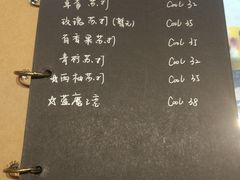 苏打 Cool 32
玫瑰苏打(暂无) Cool 35
百香果苏打 Cool 35
青柠苏打 Cool 32
☆西柚苏打 Cool 35
☆蓝魔之恋 Cool 38